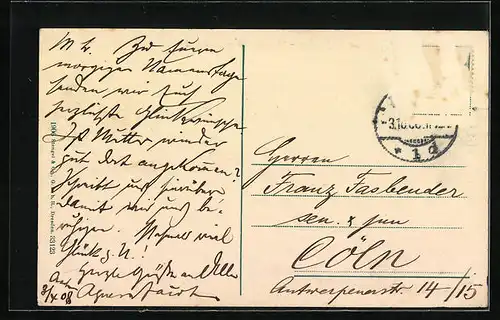 M. L. Zu Eurem
morgigen Namenstage
senden wir Euch
herzlichste Glückwünsche
Ist Mutter wieder
gut dort angekommen?
Schreibt uns hierüber
damit wir uns be-
ruhigen. viel
Glück z. N!
Herzl. Grüße an Alle
3/X 08
1908 Stengel & Co., G. m. b. H., Dresden. 33123
3.10.08
* 1 d
Herren
Franz Fasbender
sen. & jun
Cöln
Antwerpenerstr. 14/15